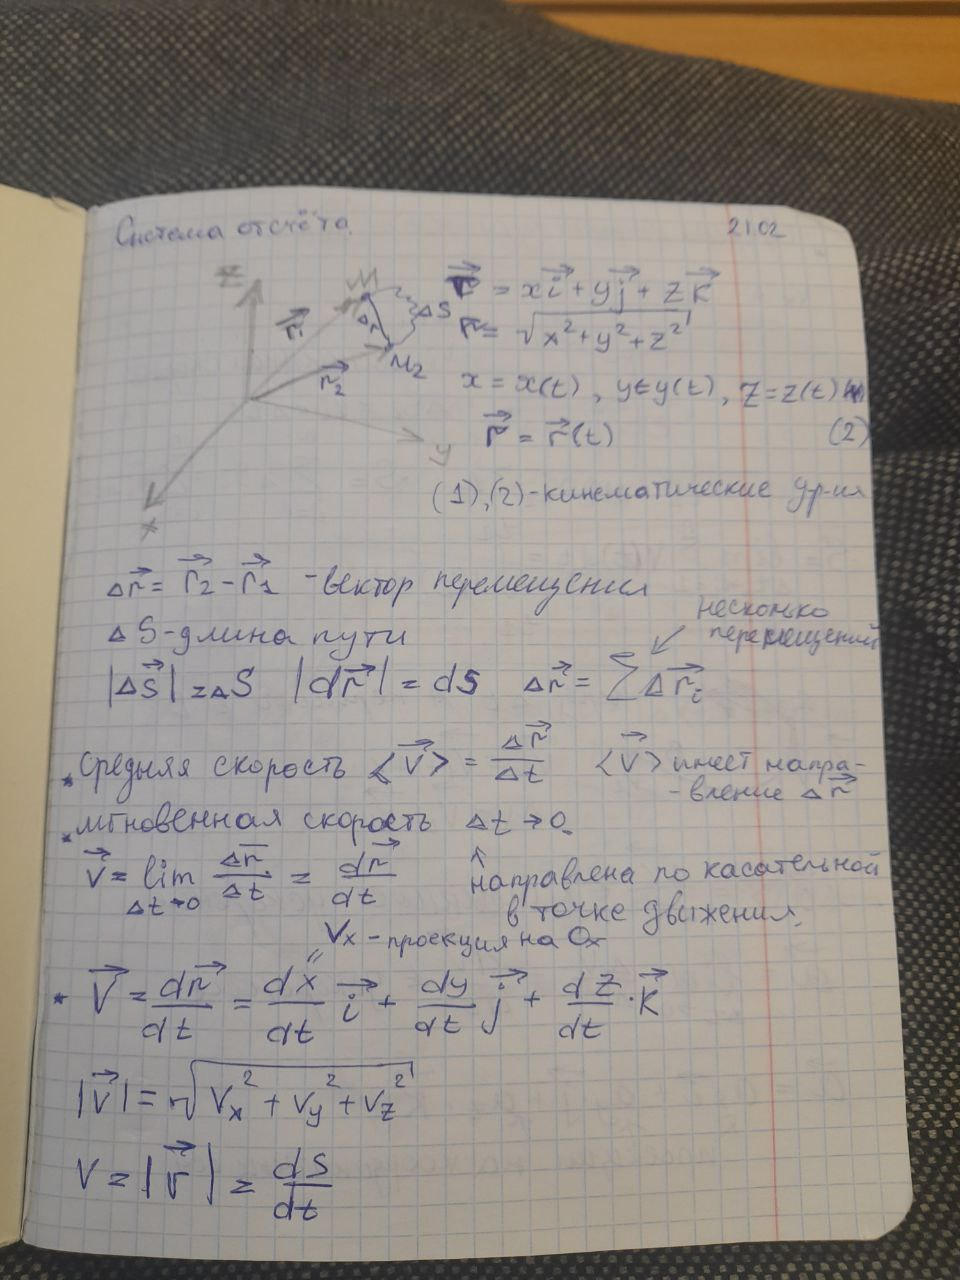 Система отсчёта. 21.02
z
M
r⃗₁
Δr
ΔS
M₂
r⃗₂
y
x
r⃗ = xi⃗ + yj⃗ + zk⃗
r = √(x² + y² + z²)
x = x(t), y = y(t), z = z(t)
r⃗ = r⃗(t) (2)
(1),(2)-кинематические ур-ия
Δr⃗ = r⃗₂ - r⃗₁ -вектор перемещения
ΔS-длина пути
несколько
перемещений
|ΔS⃗| = ΔS |dr⃗| = dS Δr⃗ = ΣΔr⃗ᵢ
* средняя скорость <v⃗> = Δr⃗/Δt <v⃗> имеет напра-
-вление Δr⃗
* мгновенная скорость Δt → 0.
v⃗ = lim Δt→0 Δr/Δt = dr⃗/dt
направлена по касательной
в точке движения.
Vx - проекция на Ox
* V⃗ = dr⃗/dt = dx/dt i⃗ + dy/dt j⃗ + dz/dt · k⃗
|v⃗| = √(Vx² + Vy² + Vz²)
V = |v⃗| = dS/dt